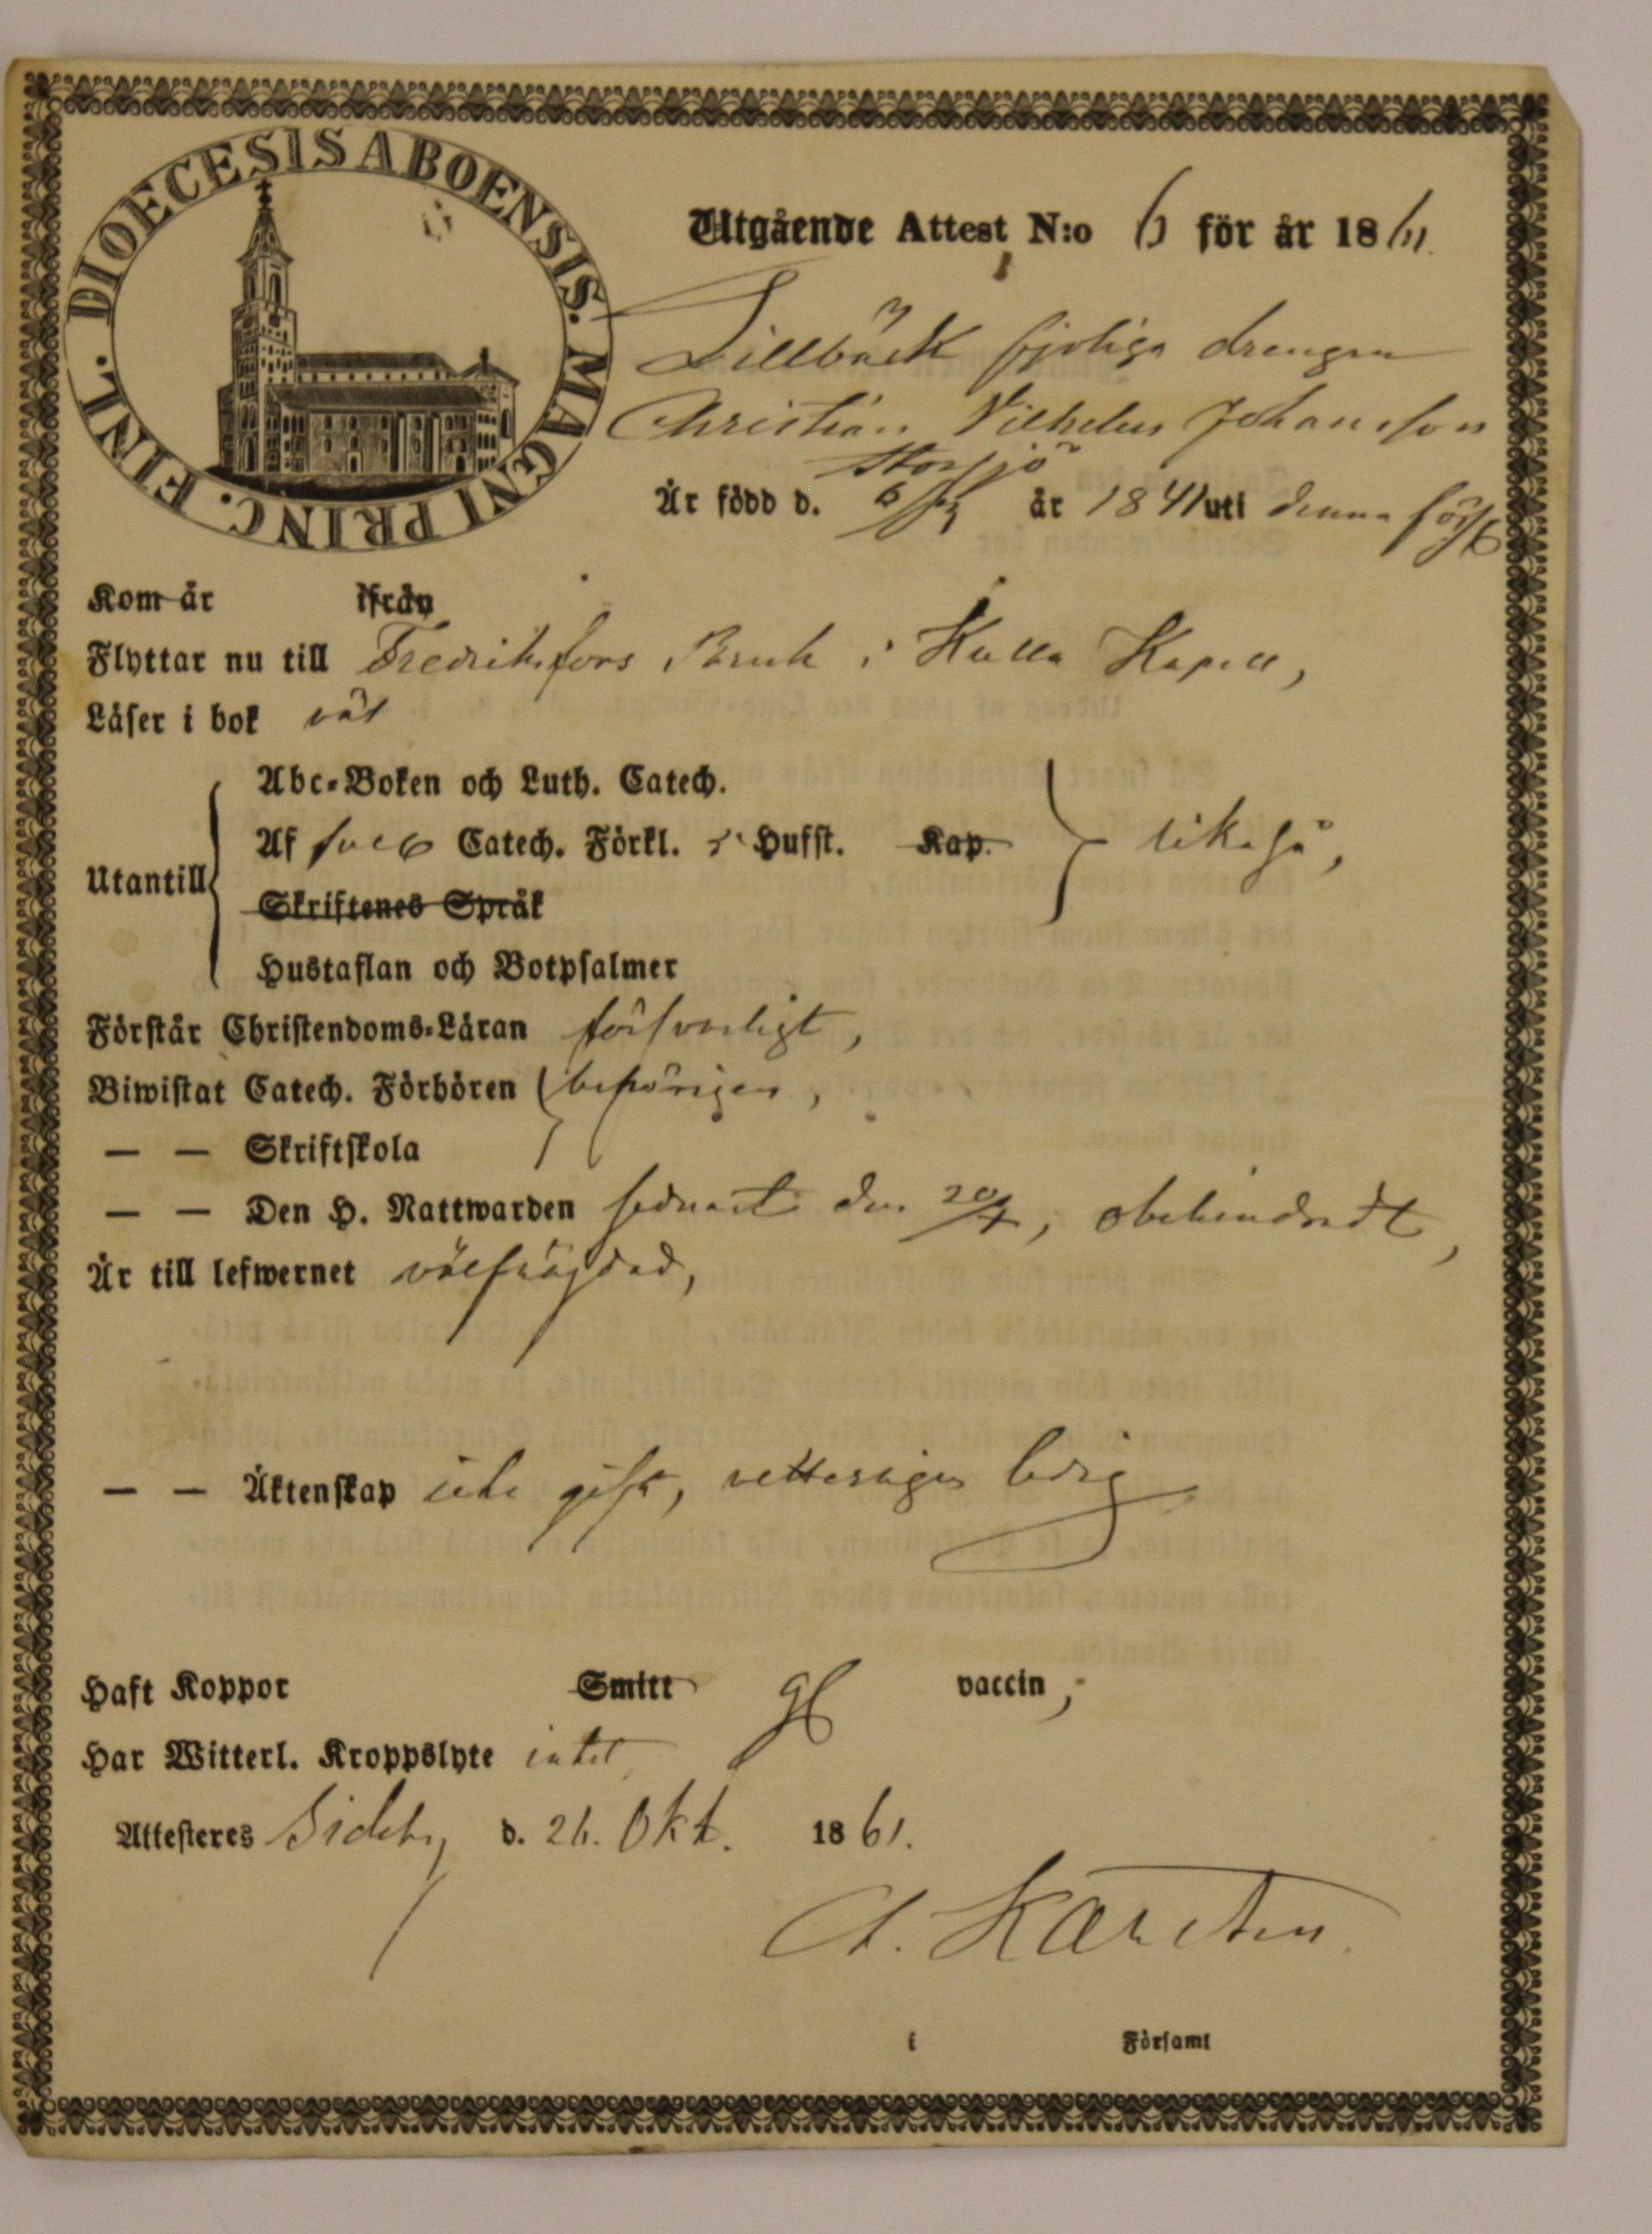 DIOECESIS ABOENSIS. MAGNI PRINC. FINL.
Utgående Attest N:o 6 för år 1861.
Lillbäck drengen
Christian Vilhelm Johansson
Storsjö
Är född d. 6/ år 1841 uti denna förs
Kom år ifrån
Flyttar nu till Fredriksfors Bruk i Kulla Kapell,
Läser i bok väl
Abc-Boken och Luth. Catech.
Af Catech. Förkl. Husst. Kap. likaså,
Utantill
Skriftenes Språk
Hustaflan och Botpsalmer
Förstår Christendoms-Läran försvarligt,
Biwistat Catech. Förhören behörigen,
— — Skriftskola
— — Den H. Nattwarden sednast den 20/7, obehindradt,
Är till lefwernet välfräjdad,
— — Äktenskap icke gift, ledig
Haft Koppor Smitt vaccin,
Har Witterl. Kroppslyte intet
Attesteres Sideby d. 26. Okt. 1861.
A. Karsten.
i Församl